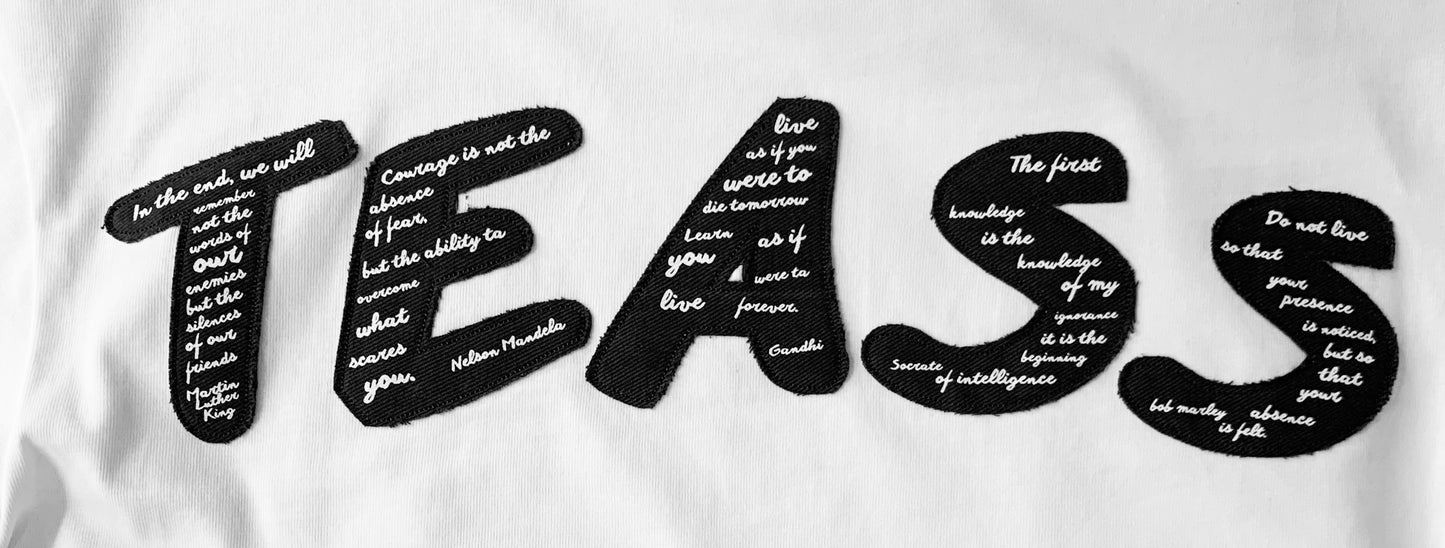 TEASs
In the end, we will
remember
not the
words of
our
enemies
but the
silences
of our
friends
Martin
Luther
King
Courage is not the
absence
of fear,
but the ability ta
overcome
what
scares
you.
Nelson Mandela
live
as if you
were to
die tomorrow
Learn as if
you were ta
live forever.
Gandhi
The first
knowledge
is the
knowledge
of my
ignorance
it is the
beginning
of intelligence
Socrate
Do not live
so that
your
presence
is noticed,
but so
that
your
absence
is felt.
bob marley